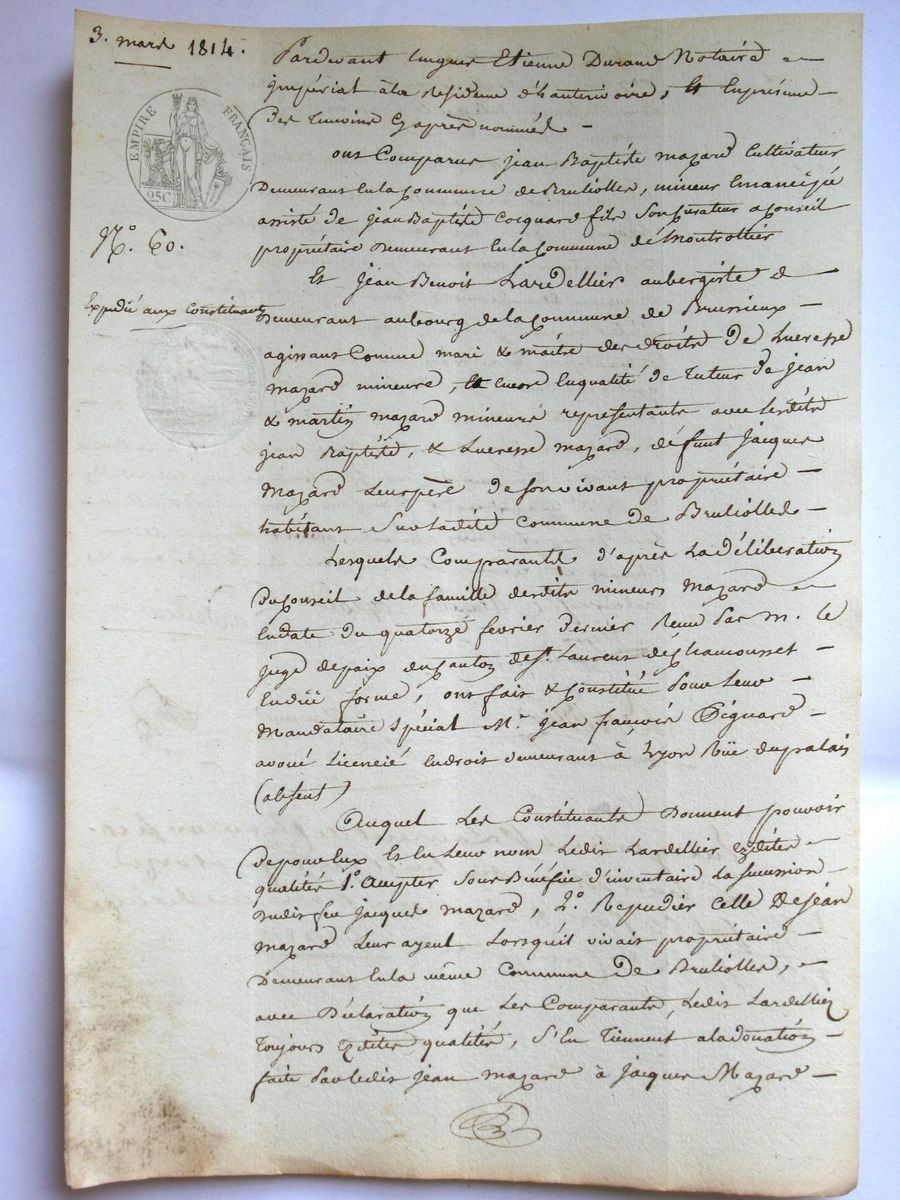 3. mars 1814.
EMPIRE FRANÇAIS
25C
N.° 60.
Expedié aux Constituants
Pardevant hugues Etienne Durand Notaire
impérial à la residence d'hauterivoire, Et Enpresence
Des temoins Cy après nommés
ont Comparus jean Baptiste mazard Cultivateur
Demeurant Enla Commune de Brulioles, mineur Emancipé
assisté de jean Baptiste Cocquard fils Son Curateur a Conseil
propriétaire Demeurant Enla Commune de Montrottier
Et jean Benoit Lardellier aubergiste
Demeurant aubourg dela Commune de Brussieux
agissant Comme mari & maitre des droits De Lucresse
mazard mineure, Et encore Enqualité de Tuteur De jean
& martin mazard mineurs representants avec lesdits
jean Baptiste, & Lucresse mazard, défunt jacques
Mazard Leur père De son vivant propriétaire
habitant Sur Ladite Commune De Brulioles
Lesquels Comparants d'après La déliberation
Du Conseil de la famille desdits mineurs Mazard
Endate Du quatorze fevrier dernier Rendu Par m. le
juge depaix du Canton de St. Laurent de Chamousset
En düe forme, ont fait & Constitué Pour Leur
Mandataire Spécial Mr. jean françois
avoué Licencié Endroit demeurant à Lyon Rüe du palais
(absent)
Auquel Les Constituants Donnent pouvoir
De pour Eux Et En Leur nom Ledit Lardellier ezdites
qualités 1.° Accepter Sous Bénéfice d'inventaire La succession
dudit feu jacques mazard, 2.° Repudier Celle De jean
mazard Leur ayeul Lorsqu'il vivait propriétaire
Demeurant Enla même Commune De Brulioles,
avec Déclaration que Les Comparants, Ledit Lardellier
Toujours ezdites qualités, S'En Tiennent ala donation
faite Par Ledit jean mazard à jacques Mazard